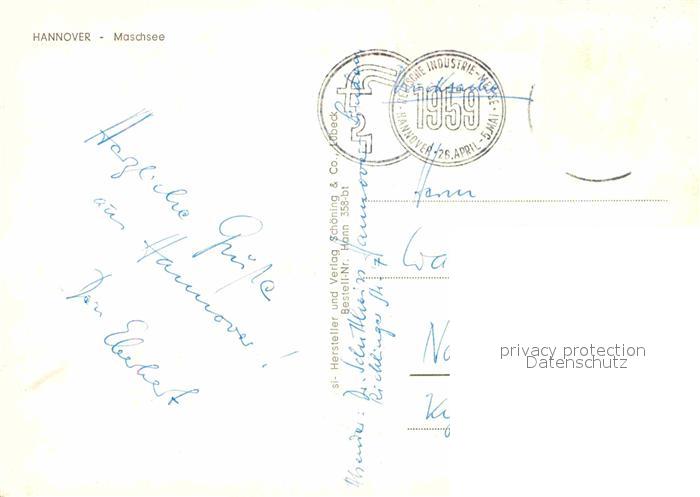 HANNOVER - Maschsee
Herzliche Grüße
aus Hannover!
Dein Eberhard
si- Hersteller und Verlag Schöning & Co., Lübeck
Bestell-Nr. Hann 358-bt
Absender: Dr. Schultheiss Hannover-Linden
Ricklinger Str. 71
DEUTSCHE INDUSTRIE-MESSE
1959
HANNOVER · 26. APRIL - 5. MAI
Drucksache
Herrn
Wa
No
privacy protection
Datenschutz